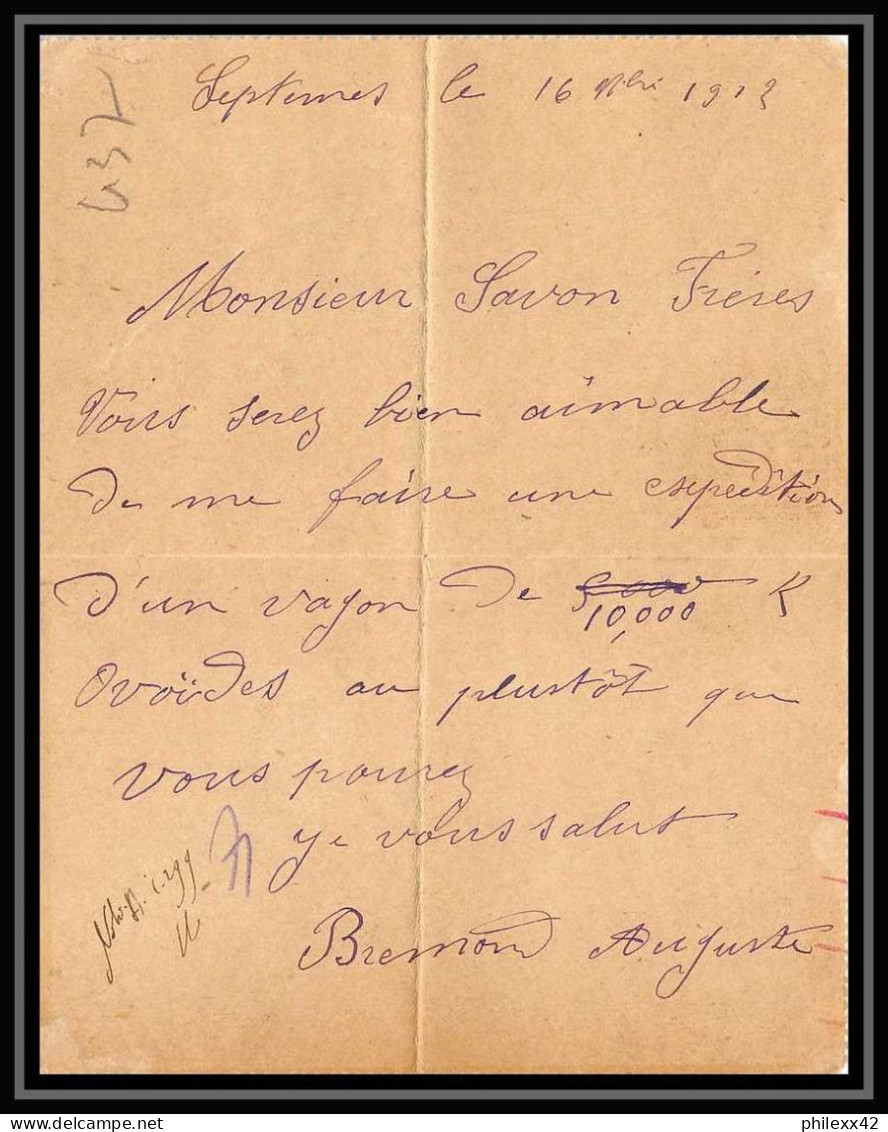 Septemes le 16 9bre 1913
637
Monsieur Savon Frères
Vous serez bien aimable
de me faire une expedition
d'un vagon de 5,000 K
10,000
Ovoïdes au plustôt que
vous pourez
je vous salut
Bremond Auguste
philexx42